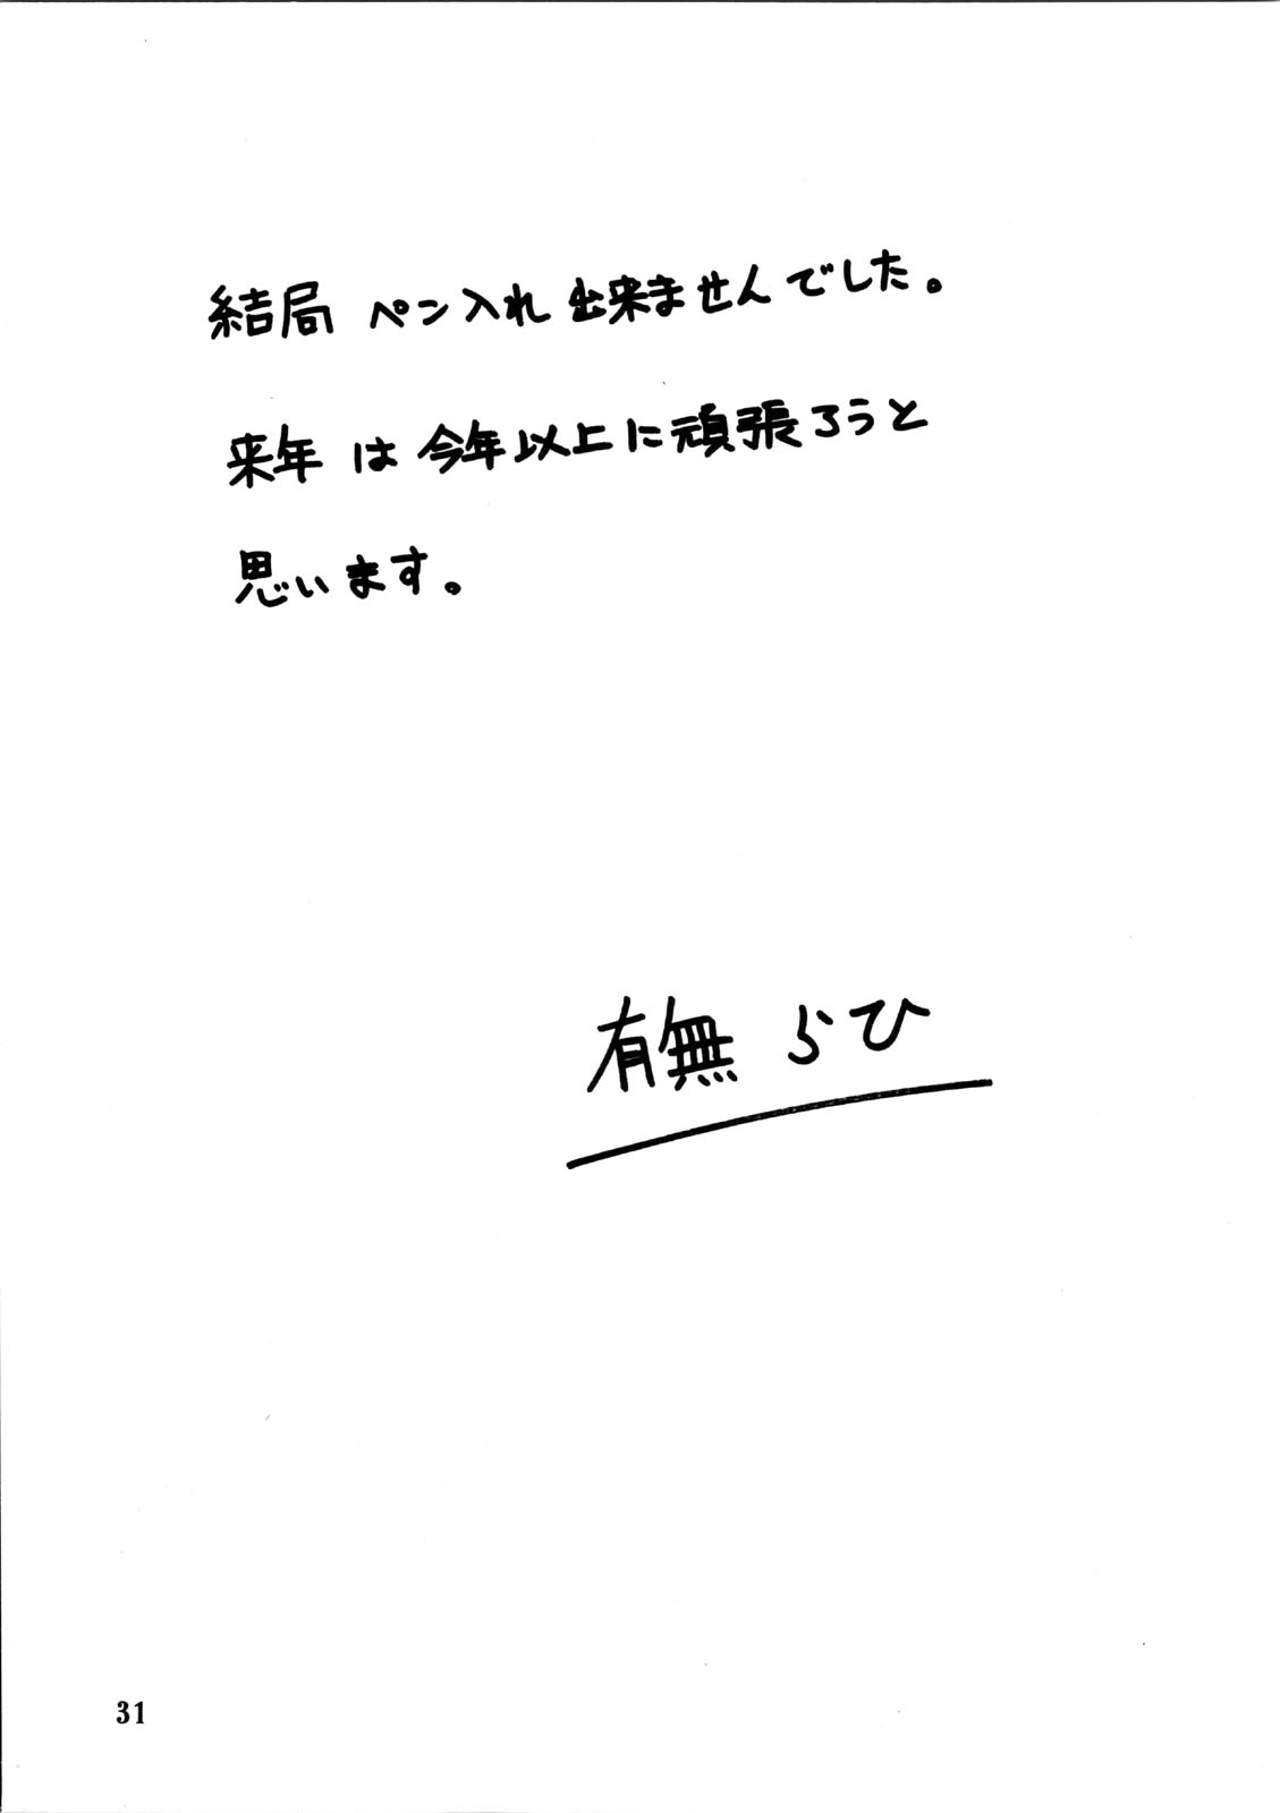 結局 ペン入れ 出来ませんでした。
来年 は 今年以上に頑張ろうと
思います。
有無 らひ
31